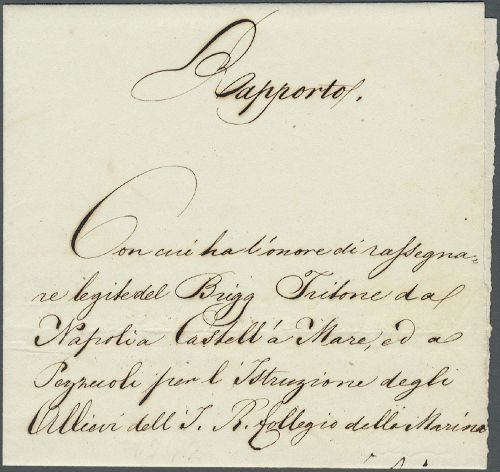 Rapporto.
Con cui ha l'onore di rassegna=
re le gite del Brigg Tritone da
Napoli a Castell'á Mare, ed a
Pozzuoli per l'Istruzione degli
Allievi dell' I. R. Collegio della Marina